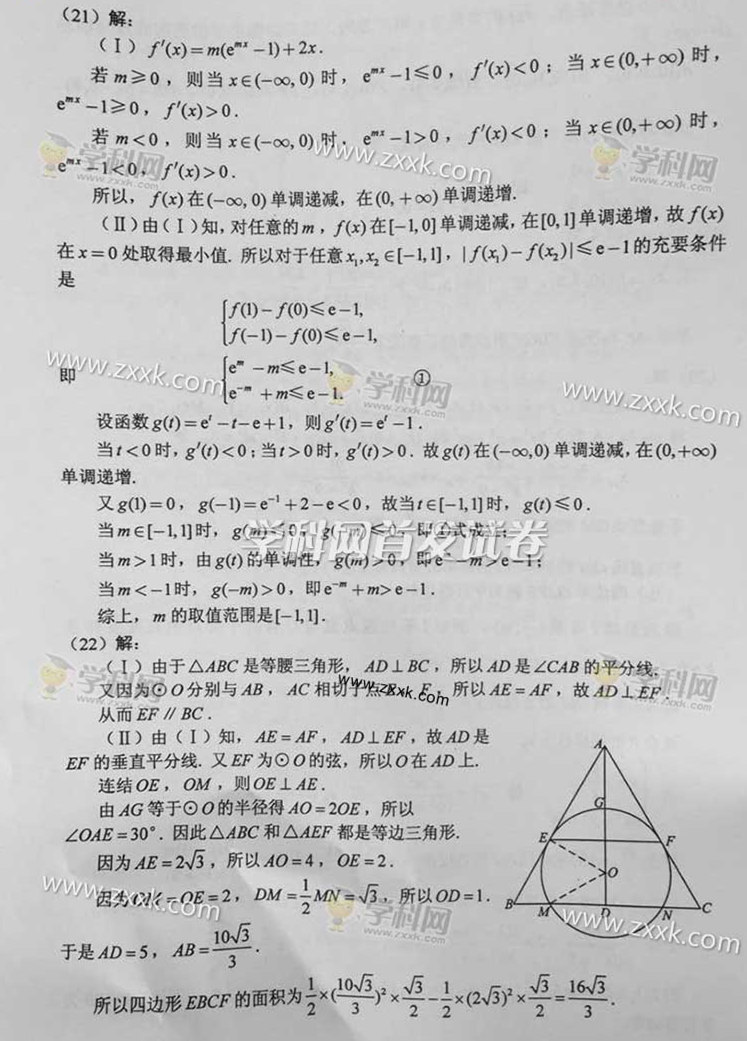 (21)解：
(Ⅰ) f′(x)=m(e^{mx}−1)+2x.
若 m≥0，则当 x∈(−∞,0) 时，e^{mx}−1≤0，f′(x)<0；当 x∈(0,+∞) 时，
e^{mx}−1≥0，f′(x)>0.
若 m<0，则当 x∈(−∞,0) 时，e^{mx}−1>0，f′(x)<0；当 x∈(0,+∞) 时，
e^{mx}−1<0，f′(x)>0.
所以，f(x)在(−∞,0)单调递减，在(0,+∞)单调递增.
(Ⅱ)由(Ⅰ)知，对任意的m，f(x)在[−1,0]单调递减，在[0,1]单调递增，故f(x)
在x=0处取得最小值. 所以对于任意x₁,x₂∈[−1,1]，|f(x₁)−f(x₂)|≤e−1的充要条件
是
f(1)−f(0)≤e−1,
f(−1)−f(0)≤e−1,
即 e^{m}−m≤e−1, ①
e^{−m}+m≤e−1.
设函数g(t)=e^{t}−t−e+1，则g′(t)=e^{t}−1.
当t<0时，g′(t)<0；当t>0时，g′(t)>0. 故g(t)在(−∞,0)单调递减，在(0,+∞)
单调递增.
又g(1)=0，g(−1)=e^{−1}+2−e<0，故当t∈[−1,1]时，g(t)≤0.
当m∈[−1,1]时，g(m)≤0，g(−m)≤0，即①式成立；
当m>1时，由g(t)的单调性，g(m)>0，即e^{m}−m>e−1；
当m<−1时，g(−m)>0，即e^{−m}+m>e−1.
综上，m的取值范围是[−1,1].
(22)解：
(Ⅰ)由于△ABC是等腰三角形，AD⊥BC，所以AD是∠CAB的平分线.
又因为⊙O分别与AB，AC相切于点E，F，所以AE=AF，故AD⊥EF.
从而EF∥BC.
(Ⅱ)由(Ⅰ)知，AE=AF，AD⊥EF，故AD是
EF的垂直平分线. 又EF为⊙O的弦，所以O在AD上.
连结OE，OM，则OE⊥AE.
由AG等于⊙O的半径得AO=2OE，所以
∠OAE=30°. 因此△ABC和△AEF都是等边三角形.
因为AE=2√3，所以AO=4，OE=2.
因为OM=OE=2，DM=1/2MN=√3，所以OD=1.
于是AD=5，AB=10√3/3.
所以四边形EBCF的面积为1/2×(10√3/3)²×√3/2−1/2×(2√3)²×√3/2=16√3/3.
A
G
E
F
O
B
M
D
N
C
学科网
zxxk.com
www.zxxk.com
学科网
zxxk.com
www.zxxk.com
学科网
zxxk.com
www.zxxk.com
学科网首发试卷
学科网
zxxk.com
www.zxxk.com
学科网
zxxk.com
www.zxxk.com
学科网
zxxk.com
www.zxxk.com